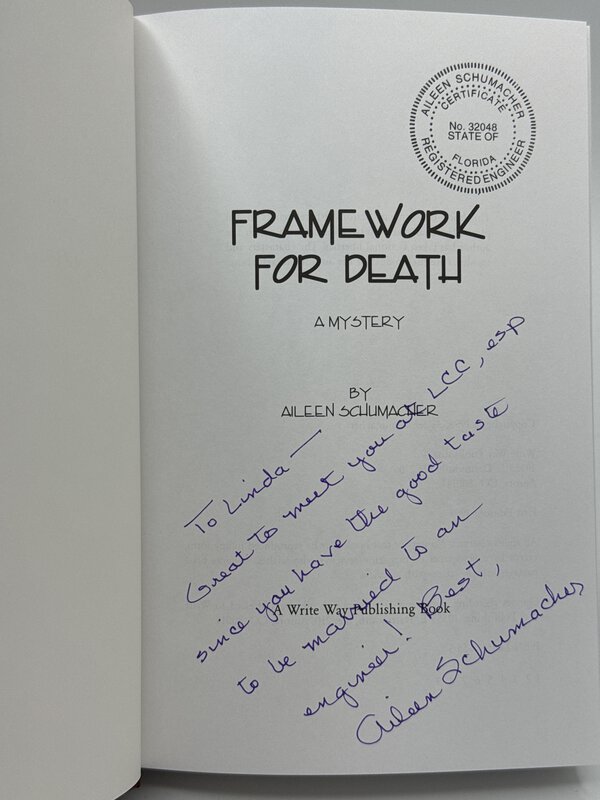 AILEEN SCHUMACHER
CERTIFICATE
No. 32048
STATE OF
FLORIDA
REGISTERED ENGINEER
FRAMEWORK
FOR DEATH
A MYSTERY
BY
AILEEN SCHUMACHER
To Linda —
Great to meet you at LCC, esp
since you have the good taste
to be married to an
engineer! Best,
Aileen Schumacher
A Write Way Publishing Book